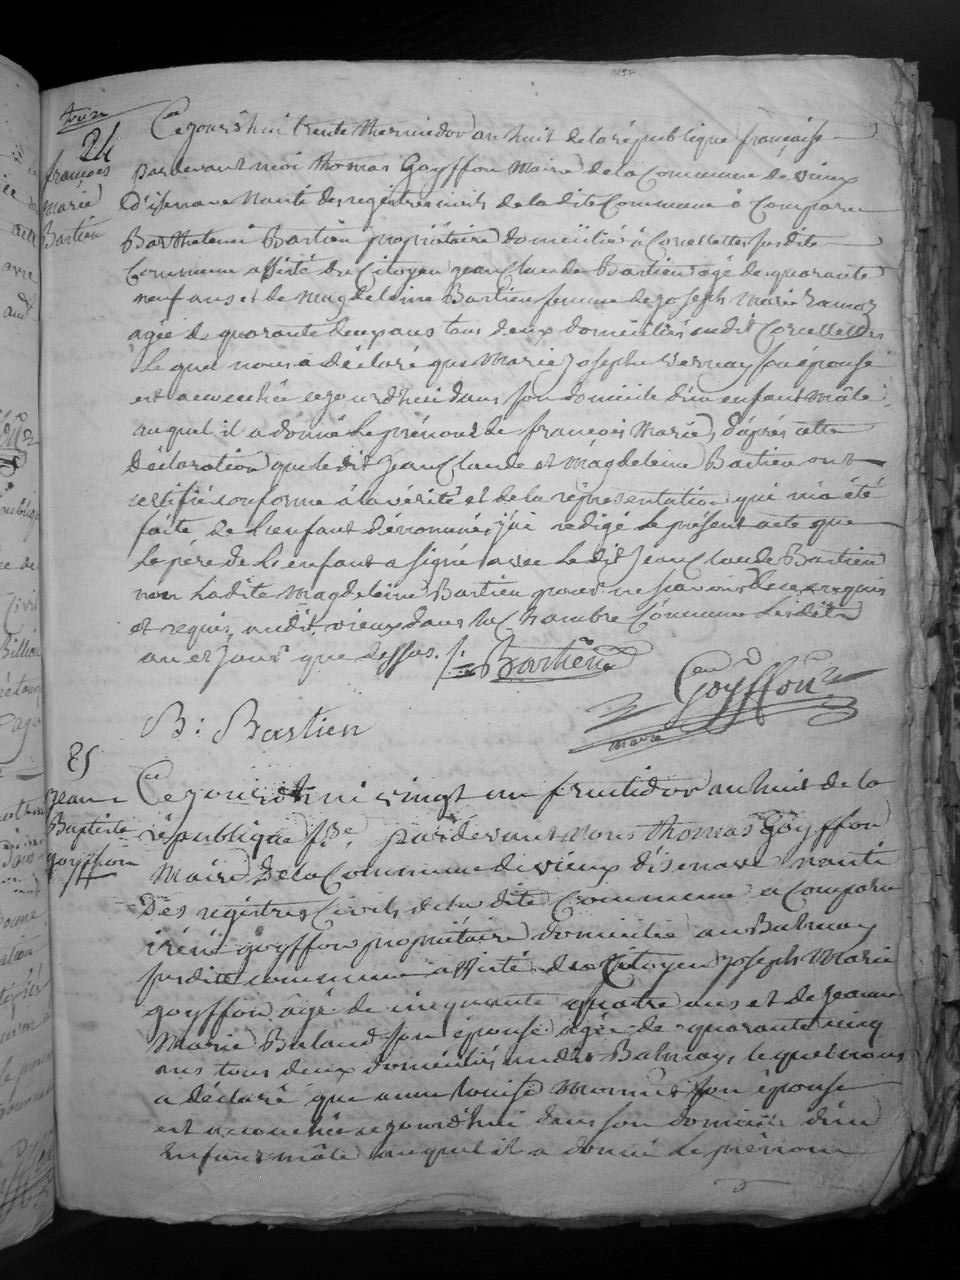 24
françois
marie
Bastien
Ce jourd'hui trente thermidor an huit de la république française
pardevant moi thomas Goyffon Maire de la Commune de vieux
d'isenave Nanti des registres civils de la dite Commune à Comparu
Barthelemi Bastien propriétaire domicilié à Corcellettes susdite
Commune assisté du Citoyen jean Claude Bastien agé de quarante
neuf ans et de Magdeleine Bastien femme de joseph Marie
agée de quarante deux ans tous deux domiciliés audit Corcellettes
Le quel nous a déclaré que Marie joseph Vernay son épouse
est accouchée cejourd'hui dans son domicile d'un enfant mâle
auquel il a donné le prénom de françois Marie, d'après cette
déclaration que le dit jean Claude et Magdeleine Bastien ont
certifié conforme à la vérité et de la réprésentation qui m'a été
faite de L'enfant dénommé, j'ai redigé le présent acte que
Le père de L'enfant a signé avec le dit jean Claude Bastien
non Ladite Magdeleine Bastien pour ne savoir de ce requis
et requise audit vieux dans la Chambre Commune les dits
an et jour que dessus. Bastien
Goyffon
maire
B: Bastien
25
jean
Baptiste
goyffon
Ce jourd'hui vingt un fructidor an huit de la
république f.se, pardevant nous thomas Goyffon
Maire de la Commune de vieux d'isenave nanti
Des registres Civils de la dite Commune a Comparu
iréné goyffon propriétaire domicilié au Balmay
susdite commune assisté du Citoyen joseph Marie
goyffon agé de cinquante quatre ans et de jeanne
Marie Buland son épouse agée de quarante cinq
ans tous deux domiciliés audit Balmay, lequel nous
a déclaré que anne louise son épouse
est accouchée cejourd'hui dans son domicile d'un
Enfant mâle auquel il a donné le prénom